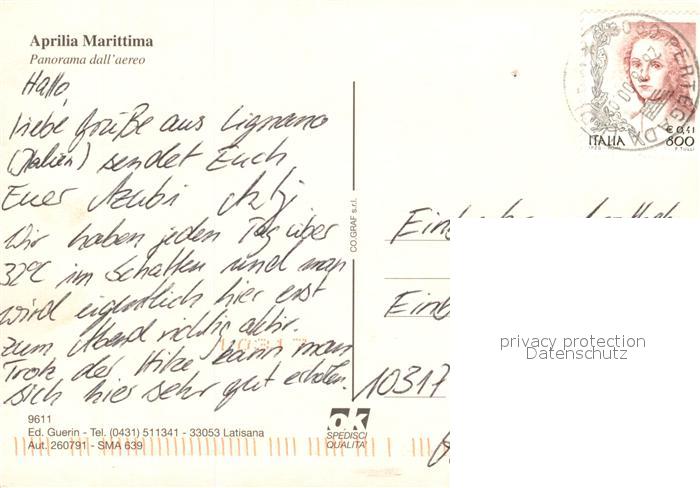 Aprilia Marittima
Panorama dall'aereo
Hallo,
liebe Grüße aus Lignano
(Italien) sendet Euch
Euer Azubi
Wir haben jeden Tag über
32°C im Schatten und man
wird eigentlich hier erst
zum Abend richtig aktiv.
Trotz der Hitze kann man
sich hier sehr gut erholen.
9611
Ed. Guerin - Tel. (0431) 511341 - 33053 Latisana
Aut. 260791 - SMA 639
CO.GRAF s.r.l.
ok
SPEDISCI
QUALITA'
PERTEGADA
ITALIA
€ 0,41
800
10317
privacy protection
Datenschutz